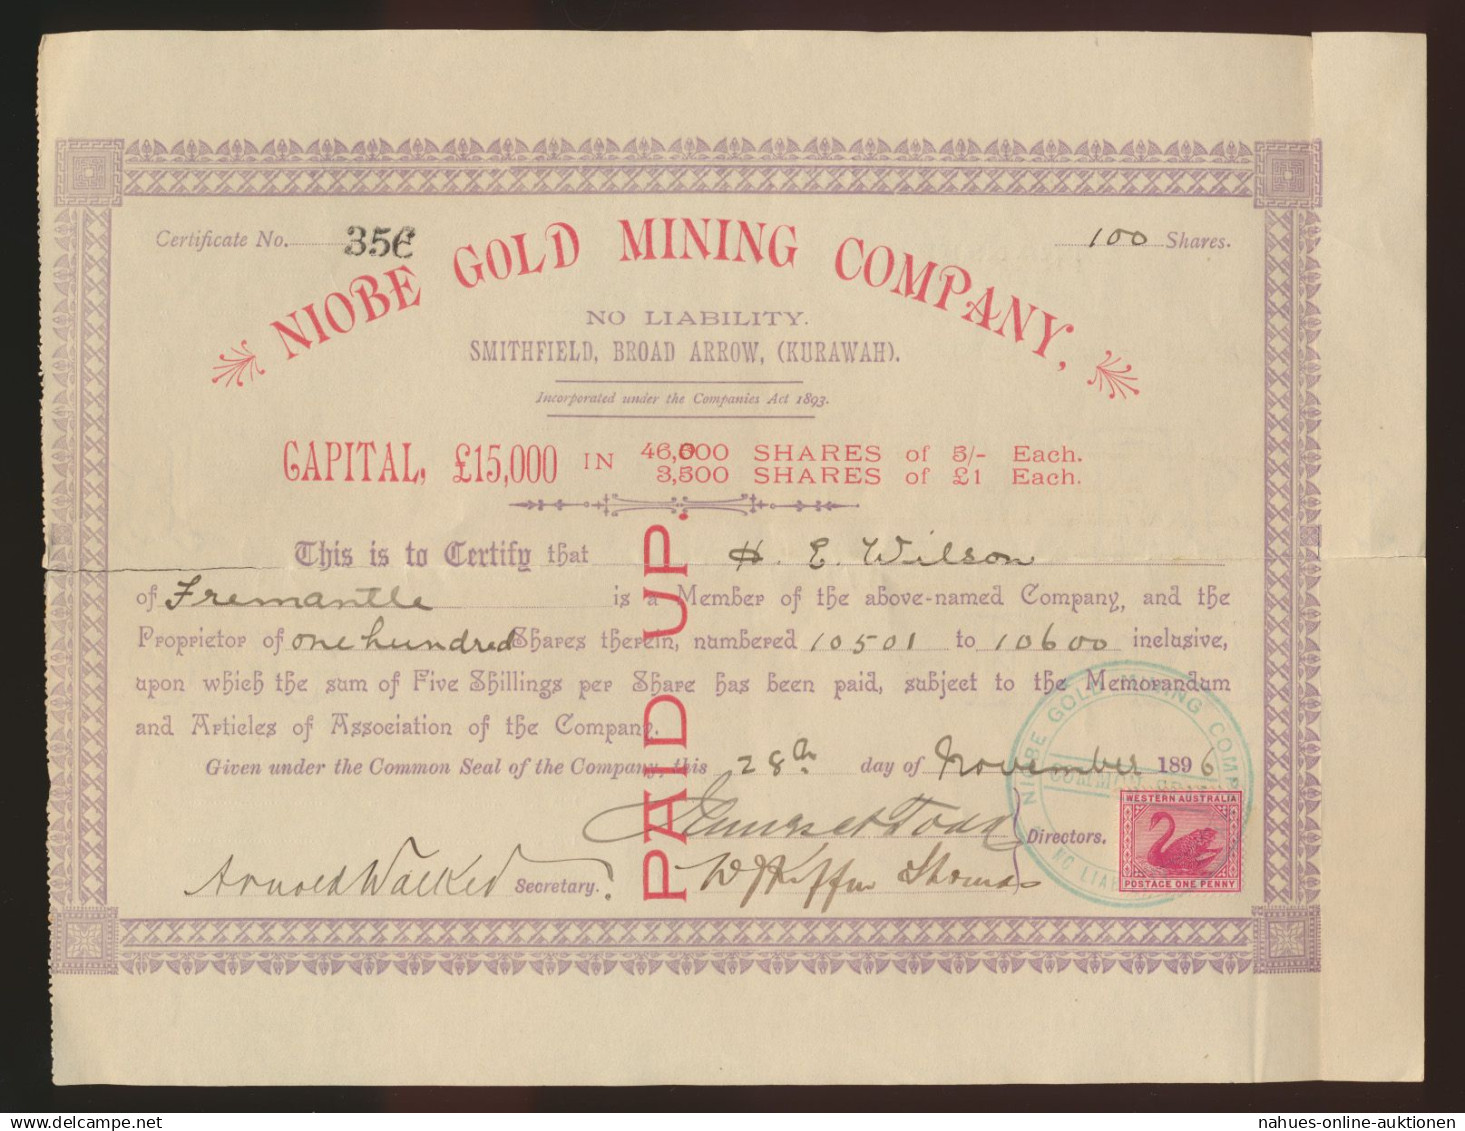 Certificate No. 356
100 Shares.
NIOBE GOLD MINING COMPANY,
NO LIABILITY.
SMITHFIELD, BROAD ARROW, (KURAWAH).
Incorporated under the Companies Act 1893.
CAPITAL, £15,000 IN 46,000 SHARES of 5/- Each.
3,500 SHARES of £1 Each.
This is to Certify that H. E. Wilson
of Fremantle is a Member of the above-named Company, and the
Proprietor of one hundred Shares therein, numbered 10501 to 10600 inclusive,
upon which the sum of Five Shillings per Share has been paid, subject to the Memorandum
and Articles of Association of the Company.
Given under the Common Seal of the Company, this 28th day of November 1896
PAID UP.
Directors.
Arnold Walked Secretary.
NIOBE GOLD MINING COMP
COMMON
NO LIA
WESTERN AUSTRALIA
POSTAGE ONE PENNY
nahues-online-auktionen